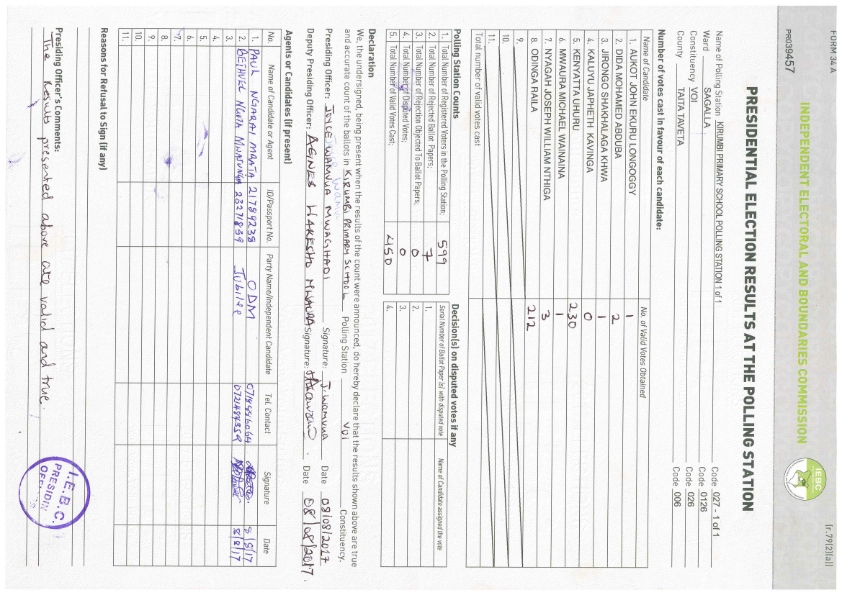 FORM 34 A
[r.79(2)(a)]
INDEPENDENT ELECTORAL AND BOUNDARIES COMMISSION
IEBC
PR039457
PRESIDENTIAL ELECTION RESULTS AT THE POLLING STATION
Name of Polling Station KIRUMBI PRIMARY SCHOOL POLLING STATION 1 of 1 Code 027 - 1 of 1
Ward SAGALLA Code 0126
Constituency VOI Code 026
County TAITA TAVETA Code 006
Number of votes cast in favour of each candidate:
Name of Candidate No. of Valid Votes Obtained
1. AUKOT JOHN EKURU LONGOGGY 1
2. DIDA MOHAMED ABDUBA 2
3. JIRONGO SHAKHALAGA KHWA 1
4. KALUYU JAPHETH KAVINGA 0
5. KENYATTA UHURU 230
6. MWAURA MICHAEL WAINAINA 1
7. NYAGAH JOSEPH WILLIAM NTHIGA 3
8. ODINGA RAILA 212
9.
10.
11.
Total number of valid votes cast
Polling Station Counts
1. Total Number of Registered Voters in the Polling Station; 599
2. Total Number of Rejected Ballot Papers; 7
3. Total Number of Rejection Objected To Ballot Papers; 0
4. Total Number of Disputed Votes; 0
5. Total Number of Valid Votes Cast; 450
Decision(s) on disputed votes if any
Serial Number of Ballot Paper (s) with disputed vote Name of Candidate assigned the vote
1.
2.
3.
4.
Declaration
We, the undersigned, being present when the results of the count were announced, do hereby declare that the results shown above are true
and accurate count of the ballots in KIRUMBI PRIMARY SCHOOL Polling Station VOI Constituency.
Presiding Officer: JOYCE WAMVUA MWAGHADI Signature: J. Wamvua Date 08/08/2017
Deputy Presiding Officer: AGNES MWAURA Signature: Date 08/08/2017.
Agents or Candidates (if present)
No. Name of Candidate or Agent ID/Passport No. Party Name/Independent Candidate Tel. Contact Signature Date
1. PAUL 21789238 ODM 8/8/17
2. 23271839 Jubilee 8/8/17
3.
4.
5.
6.
7.
8.
9.
10.
11.
Reasons for Refusal to Sign (if any)
Presiding Officer's Comments:
The Results presented above are valid and true.
I.E.B.C.
PRESIDING
OFF